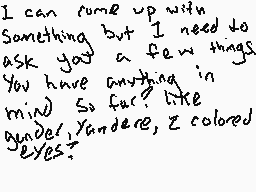 I can come up with
something but I need to
ask you a few things.
You have anything in
mind so far? like
gender, yandere, 2 colored
eyes?